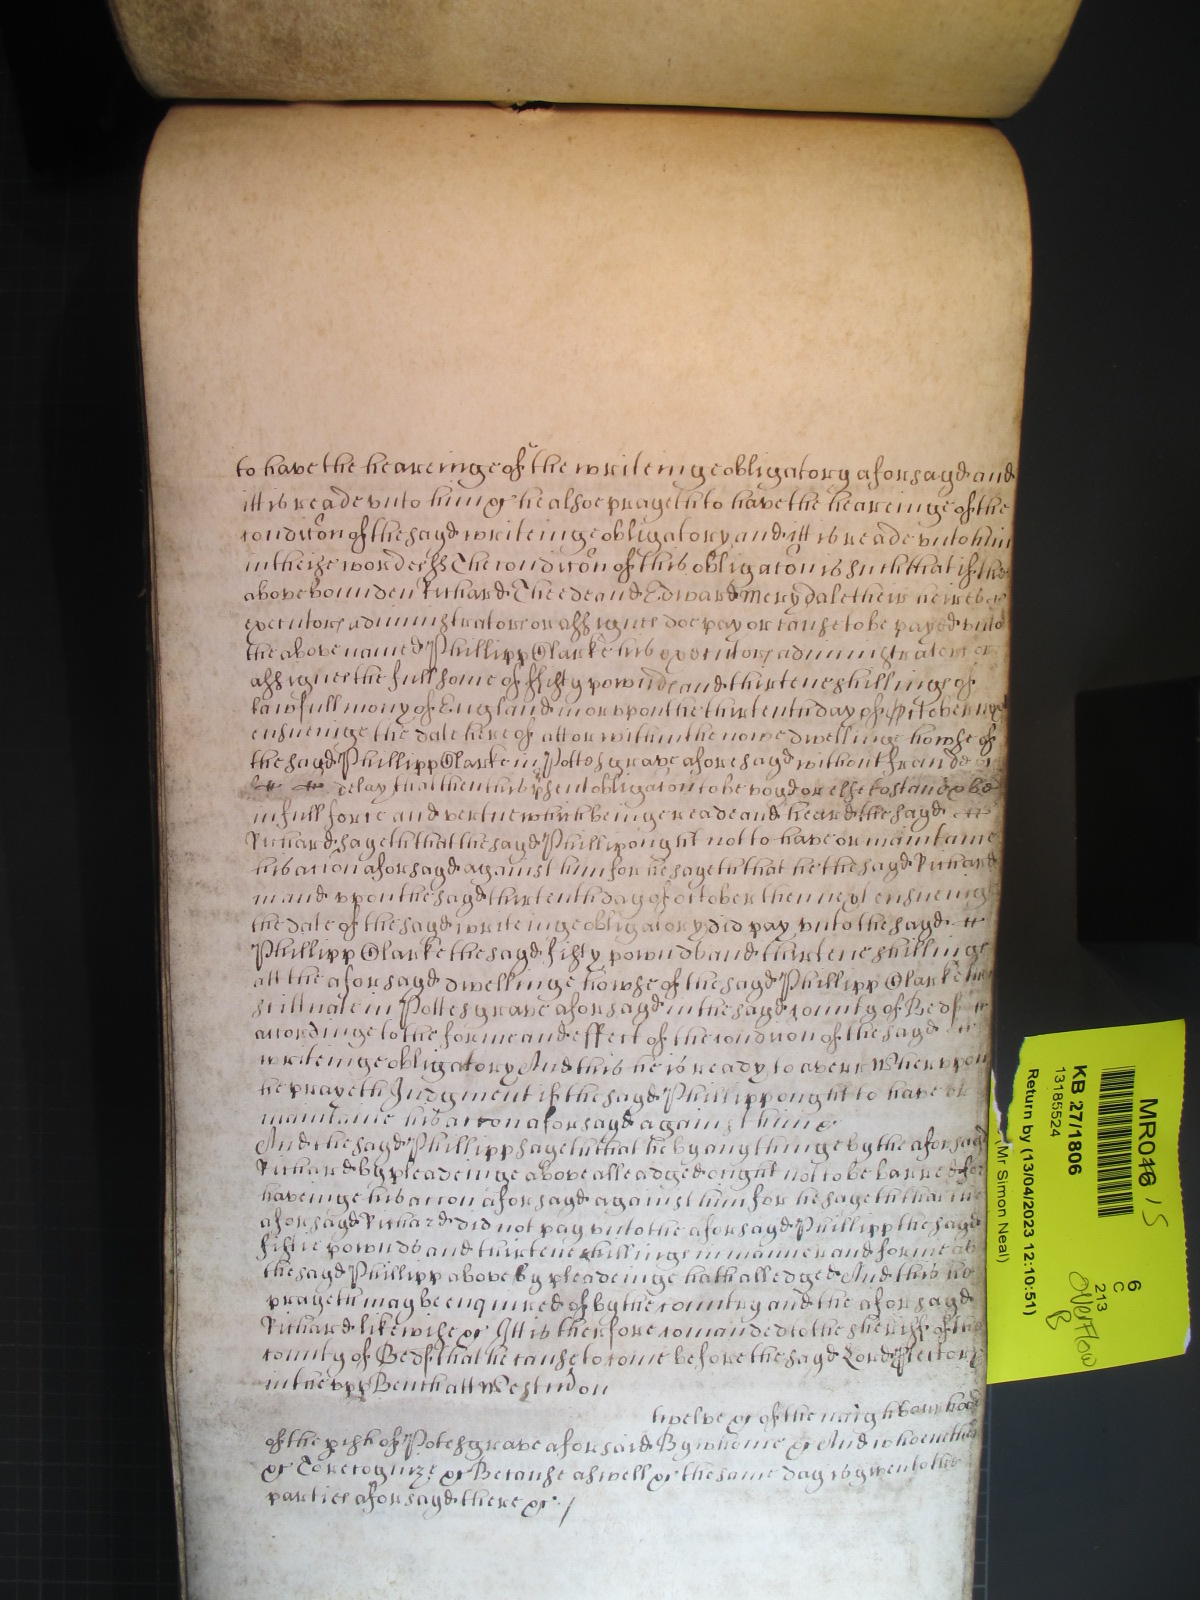 to have the heareinge of the writeinge obligatory aforsayd and
itt is reade unto him &c he alsoe prayeth to have the heareinge of the
condicõn of the sayd writeinge obligatory and itt is reade unto him
in theise wordes ss The condicõn of this obligacõn is such that if the
above bounden Richard Theede and Edward Merydale their heires
executors administrators or assignes doe pay or cause to be payed unto
the above named Phillipp Clarke his executors administrators or
assignes the full some of fifty pownds and thirtene shillings of
lawfull mony of England in or uppon the thirtenth day of October next
ensueinge the date here of att or within the nowe dwellinge howse of
the sayd Phillipp Clarke in Pottesgrave aforesayd without fraude or
delay that then this psent obligacõn to be voyd or else to stand & be
in full force and vertue which beinge reade and heard the sayd
Richard sayeth that the sayd Phillip ought not to have or maintaine
his accõn aforsayd against him for he sayeth that he the sayd Richard
in and uppon the sayd thirtenth day of october then next ensueinge
the date of the sayd writeinge obligatory did pay unto the sayd
Phillipp Clarke the sayd fifty pownds and thirtene shillings
att the aforsayd dwellinge howse of the sayd Phillipp Clarke
scittuate in Pottesgrave aforsayd in the sayd county of Bedf
accordinge to the forme and effect of the condicon of the sayd
writeinge obligatory And this he is ready to averr Wheruppon
he prayeth Judgment if the sayd Phillipp ought to have or
maintaine his accon aforsayd against him &c
And the sayd Phillipp sayeth that he by any thinge by the aforsayd
Richard by pleadeinge above alleadged ought not to be barred for
haveinge his accon aforsayd against him for he sayeth that the
aforsayd Richard did not pay unto the aforsayd Phillipp the sayd
fiftie pownds and thirtene shillings in manner and forme as
the sayd Phillipp above by pleadeinge hath alledged And this he
prayeth may be enquired of by the country and the aforsayd
Richard likewise &c Itt is therfore comanded to the sheriff of the
county of Bedf that he cause to come before the sayd Lord Protector
in the upp Bench att Westm̃ on
twelve &c of the neighbourhood
of the pish of Potesgrave aforsaid By whome &c And who neither
&c To recognize &c Because aswell &c the same day is given to the
parties aforsayd there &c /
MR046 / S
KB 27/1806
13185524
Return by (13/04/2023 12:10:51)
(Mr Simon Neal)
6
C
213
Overflow
B